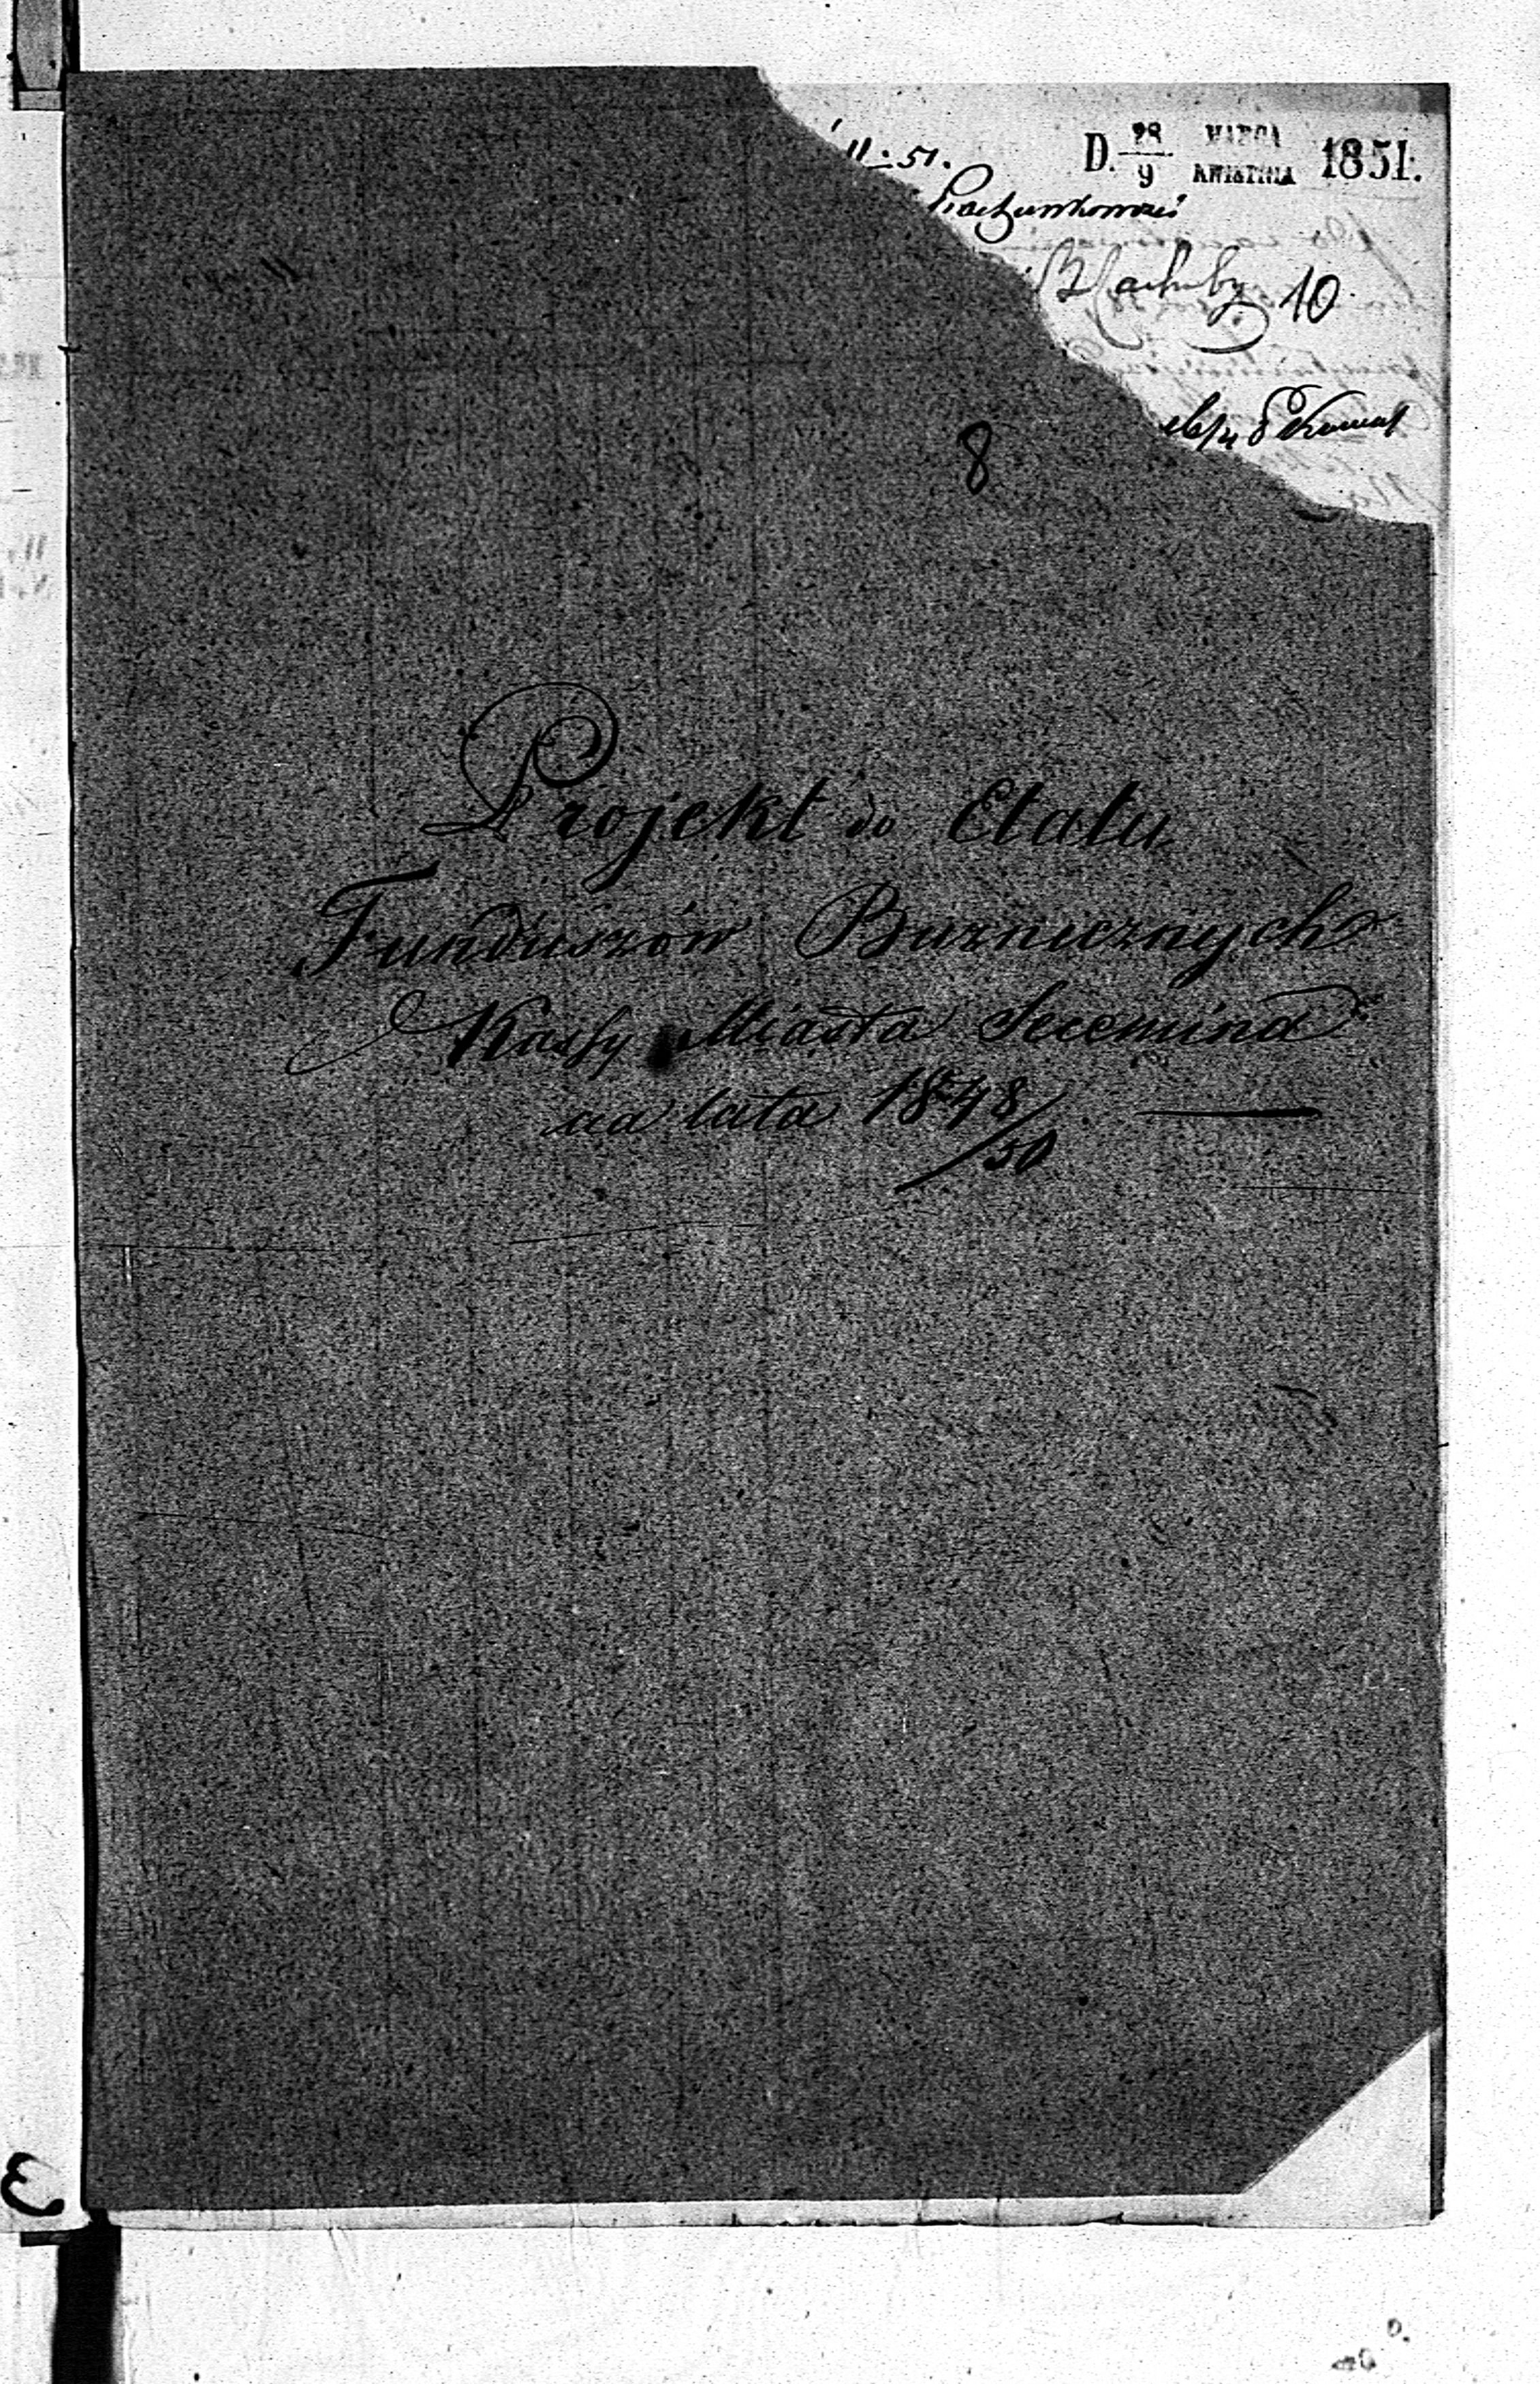 11. 51.
D. 28/9 MARCA/KWIETNIA 1851.
Rachunkowości
10
8
Projekt do Etatu
Funduszów Buzniczych
Kassy Miasta Secemina
na lata 1848/50
3